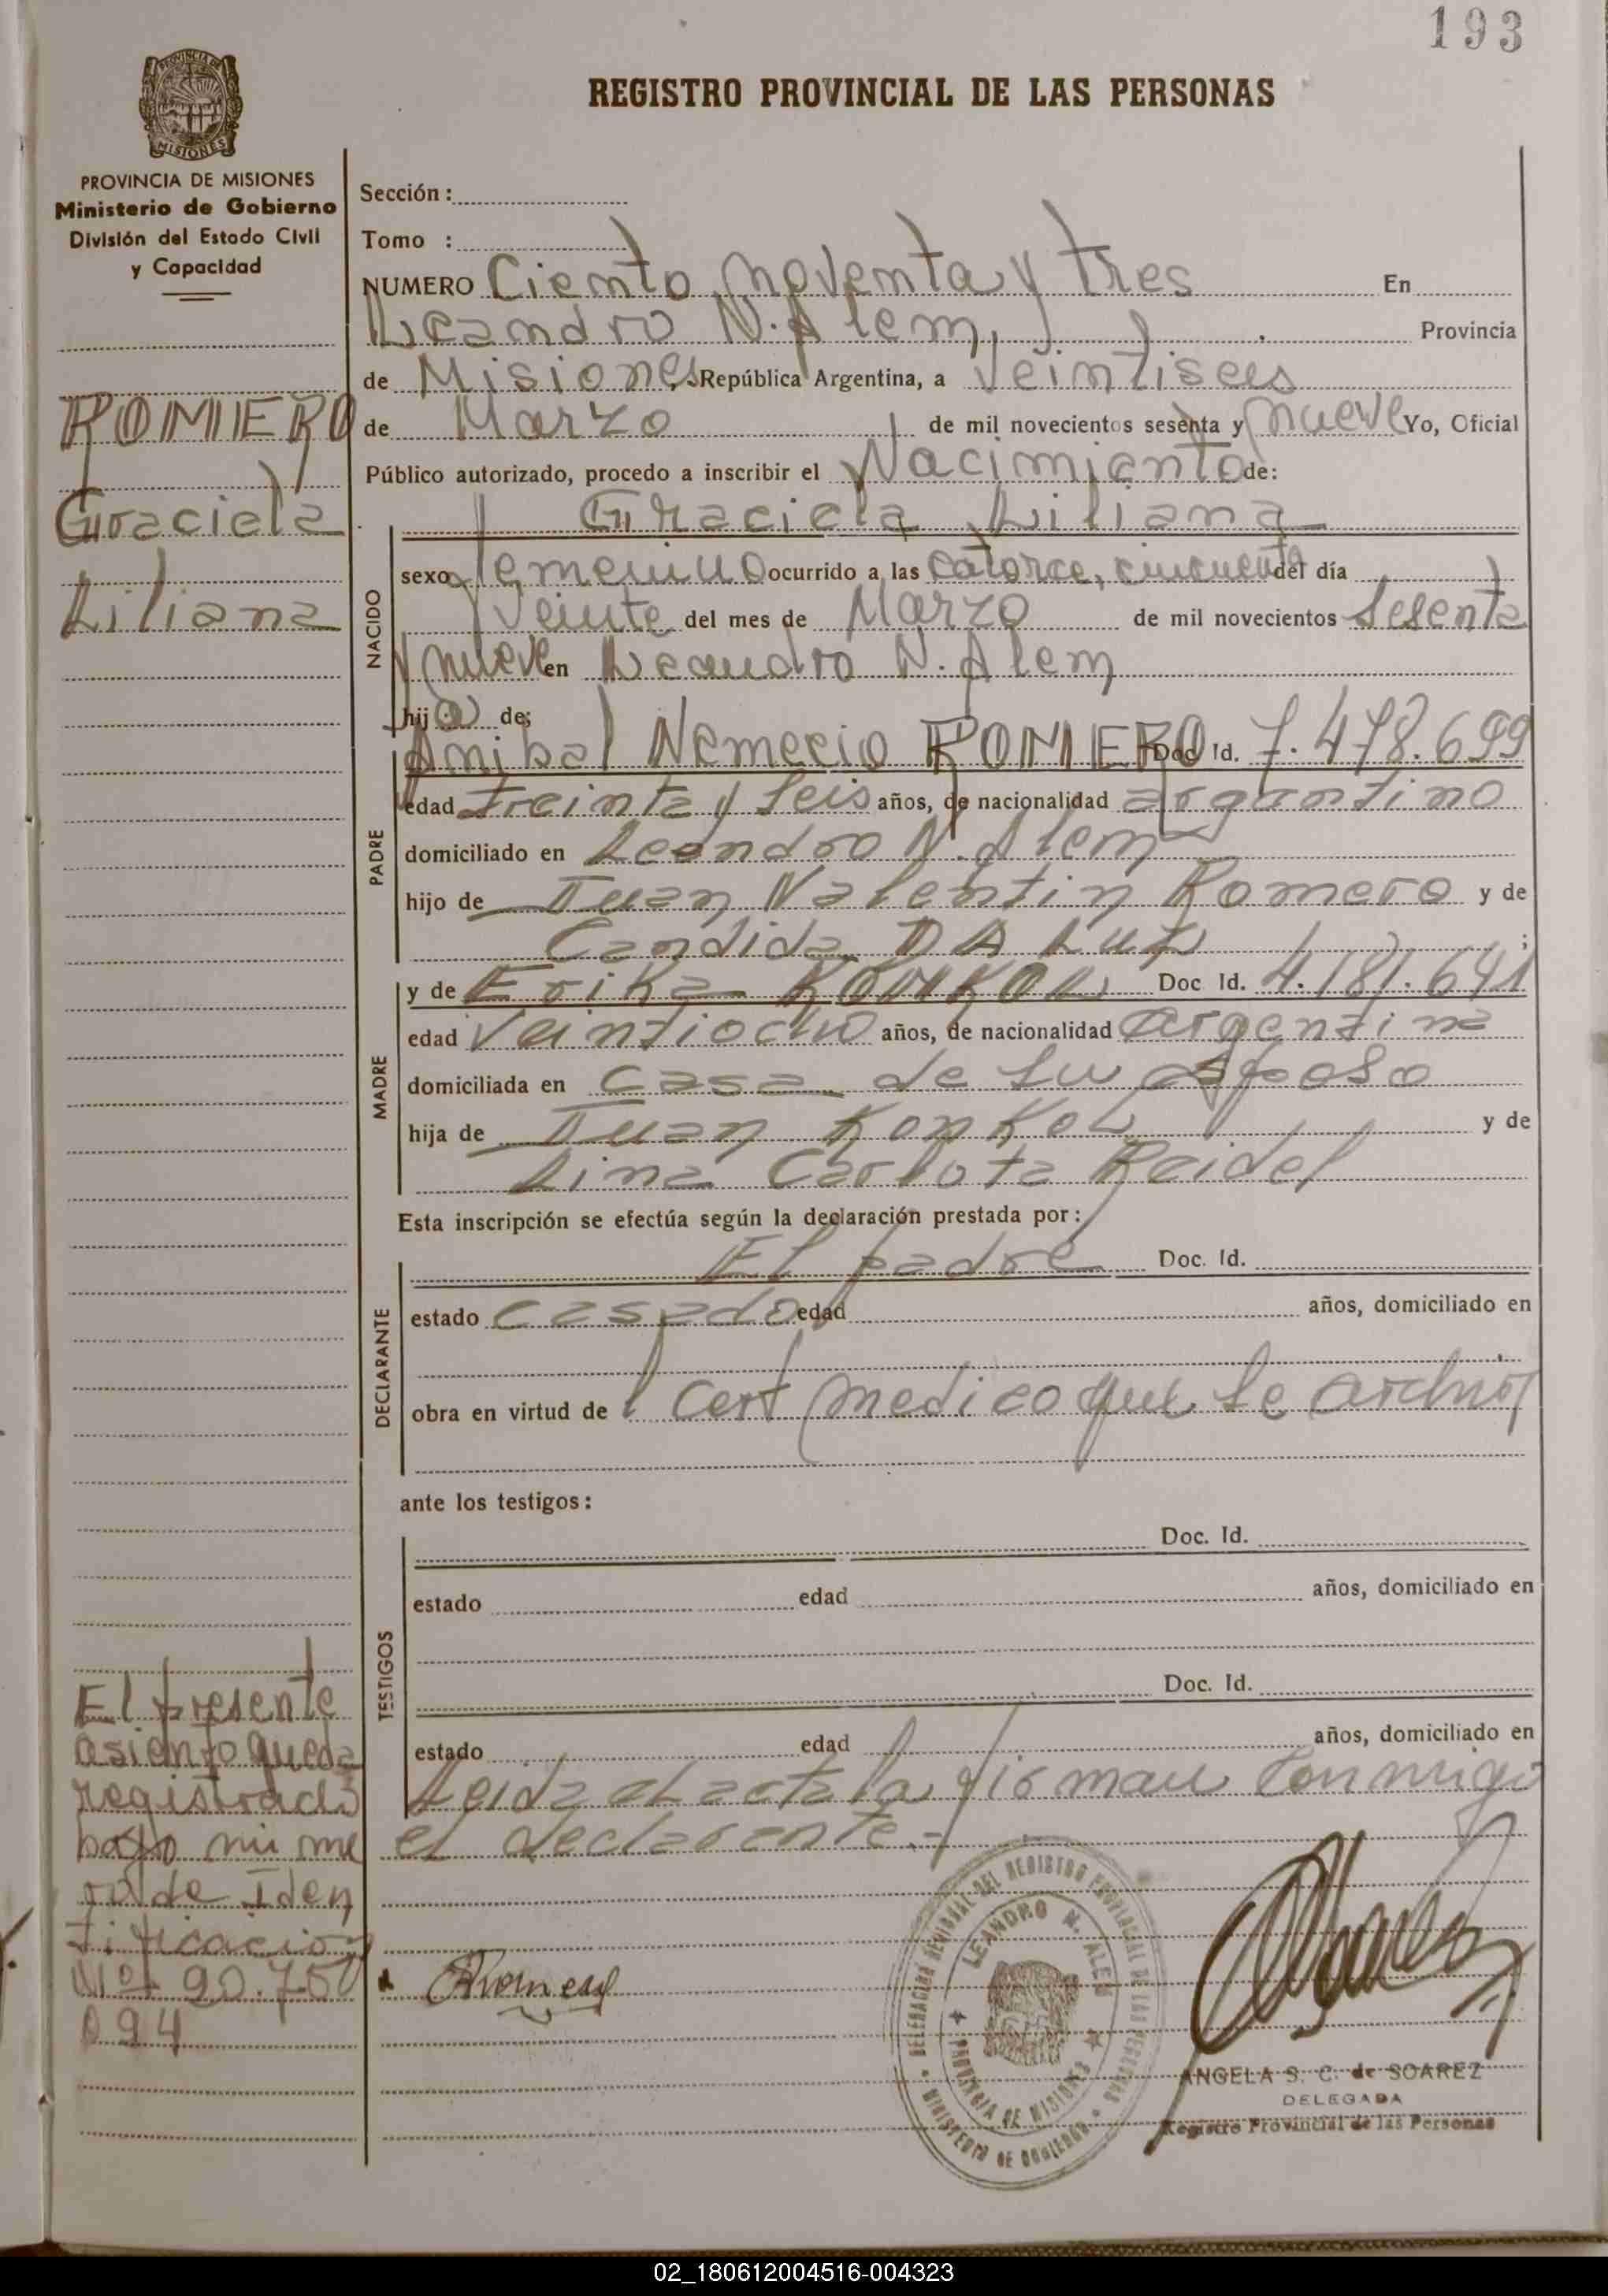 193
REGISTRO PROVINCIAL DE LAS PERSONAS
MISIONES
PROVINCIA DE MISIONES
Ministerio de Gobierno
División del Estado Civil
y Capacidad
ROMERO
Graciela
Liliana
El presente
asiento queda
registrado
bajo nu me
ro de Iden
tificacion
Nº 90.750
094
Sección:
Tomo :
NUMERO Ciento noventa y tres En
Leandro N. Alem, Provincia
de Misiones República Argentina, a Veintiseis
de Marzo de mil novecientos sesenta y nueve Yo, Oficial
Público autorizado, procedo a inscribir el Nacimiento de:
Graciela Liliana
NACIDO
sexo femenino ocurrido a las catorce, cincuenta del día
Veinte del mes de Marzo de mil novecientos Sesenta
y nueve en Leandro N. Alem
hij a de;
PADRE
Anibal Nemecio ROMERO Doc Id. 7.478.699
edad Treinta y Seis años, de nacionalidad argentino
domiciliado en Leandro N. Alem
hijo de Juan Valentin Romero y de
Candida DA Luz ;
MADRE
y de Erika KONKOL Doc Id. 4.181.641
edad Veintiocho años, de nacionalidad argentina
domiciliada en Casa de su esposo
hija de Juan Konkol y de
Lina Carlota Reidel
Esta inscripción se efectúa según la declaración prestada por:
DECLARANTE
El padre Doc. Id.
estado casado edad años, domiciliado en
obra en virtud de l Cert medico que se
ante los testigos:
TESTIGOS
Doc. Id.
estado edad años, domiciliado en
Doc. Id.
estado edad años, domiciliado en
Leida el acta la firman conmigo
el declarante.-
DELEGACION DEL REGISTRO PROVINCIAL DE LAS PERSONAS
LEANDRO N. ALEM
PROVINCIA DE MISIONES
MINISTERIO DE GOBIERNO
ANGELA S. C. de SOAREZ
DELEGADA
Registro Provincial de las Personas
02_180612004516-004323